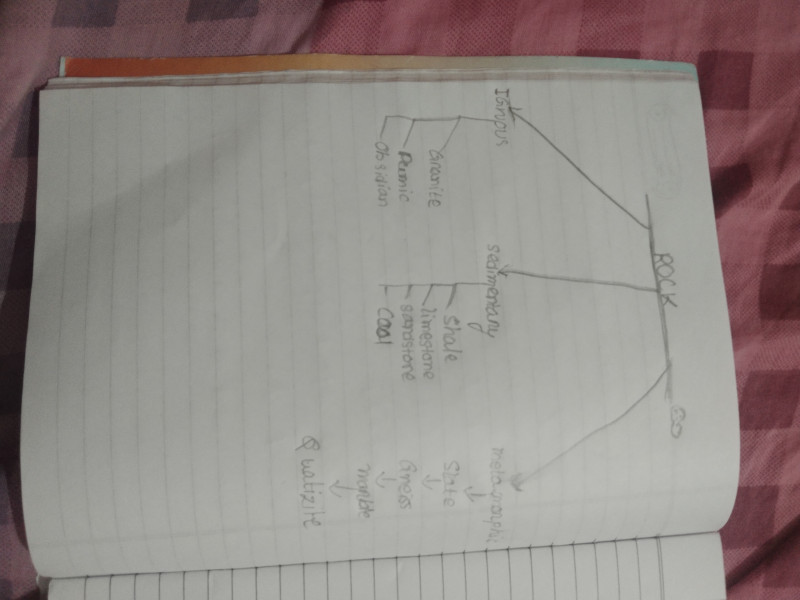 ROCK
Ignuous
Granite
Pumic
Obsidian
sedimentary
shale
limestone
sandstone
Coal
metamorphi
Slate
Gness
marble
Quatizite